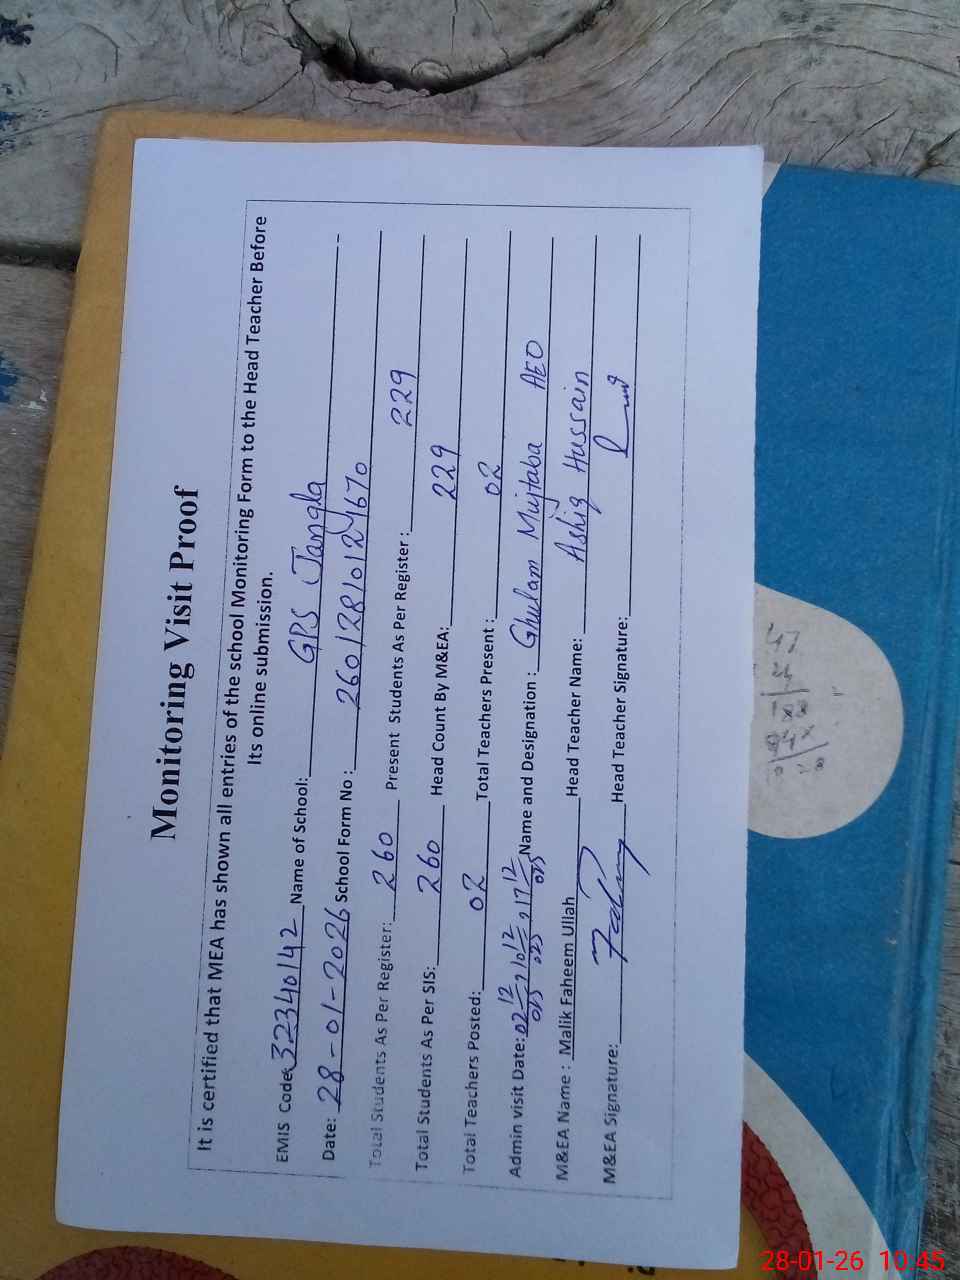 Monitoring Visit Proof
It is certified that MEA has shown all entries of the school Monitoring Form to the Head Teacher Before
Its online submission.
EMIS Code 32340142 Name of School: GPS Jangla
Date: 28-01-2026 School Form No: 26012810124670
Total Students As Per Register: 260 Present Students As Per Register: 229
Total Students As Per SIS: 260 Head Count By M&EA: 229
Total Teachers Posted: 02 Total Teachers Present: 02
Admin visit Date: Name and Designation: Ghulam Mujtaba AEO
M&EA Name: Malik Faheem Ullah Head Teacher Name: Ashiq Hussain
M&EA Signature: Head Teacher Signature:
47
188
28-01-26 10:45